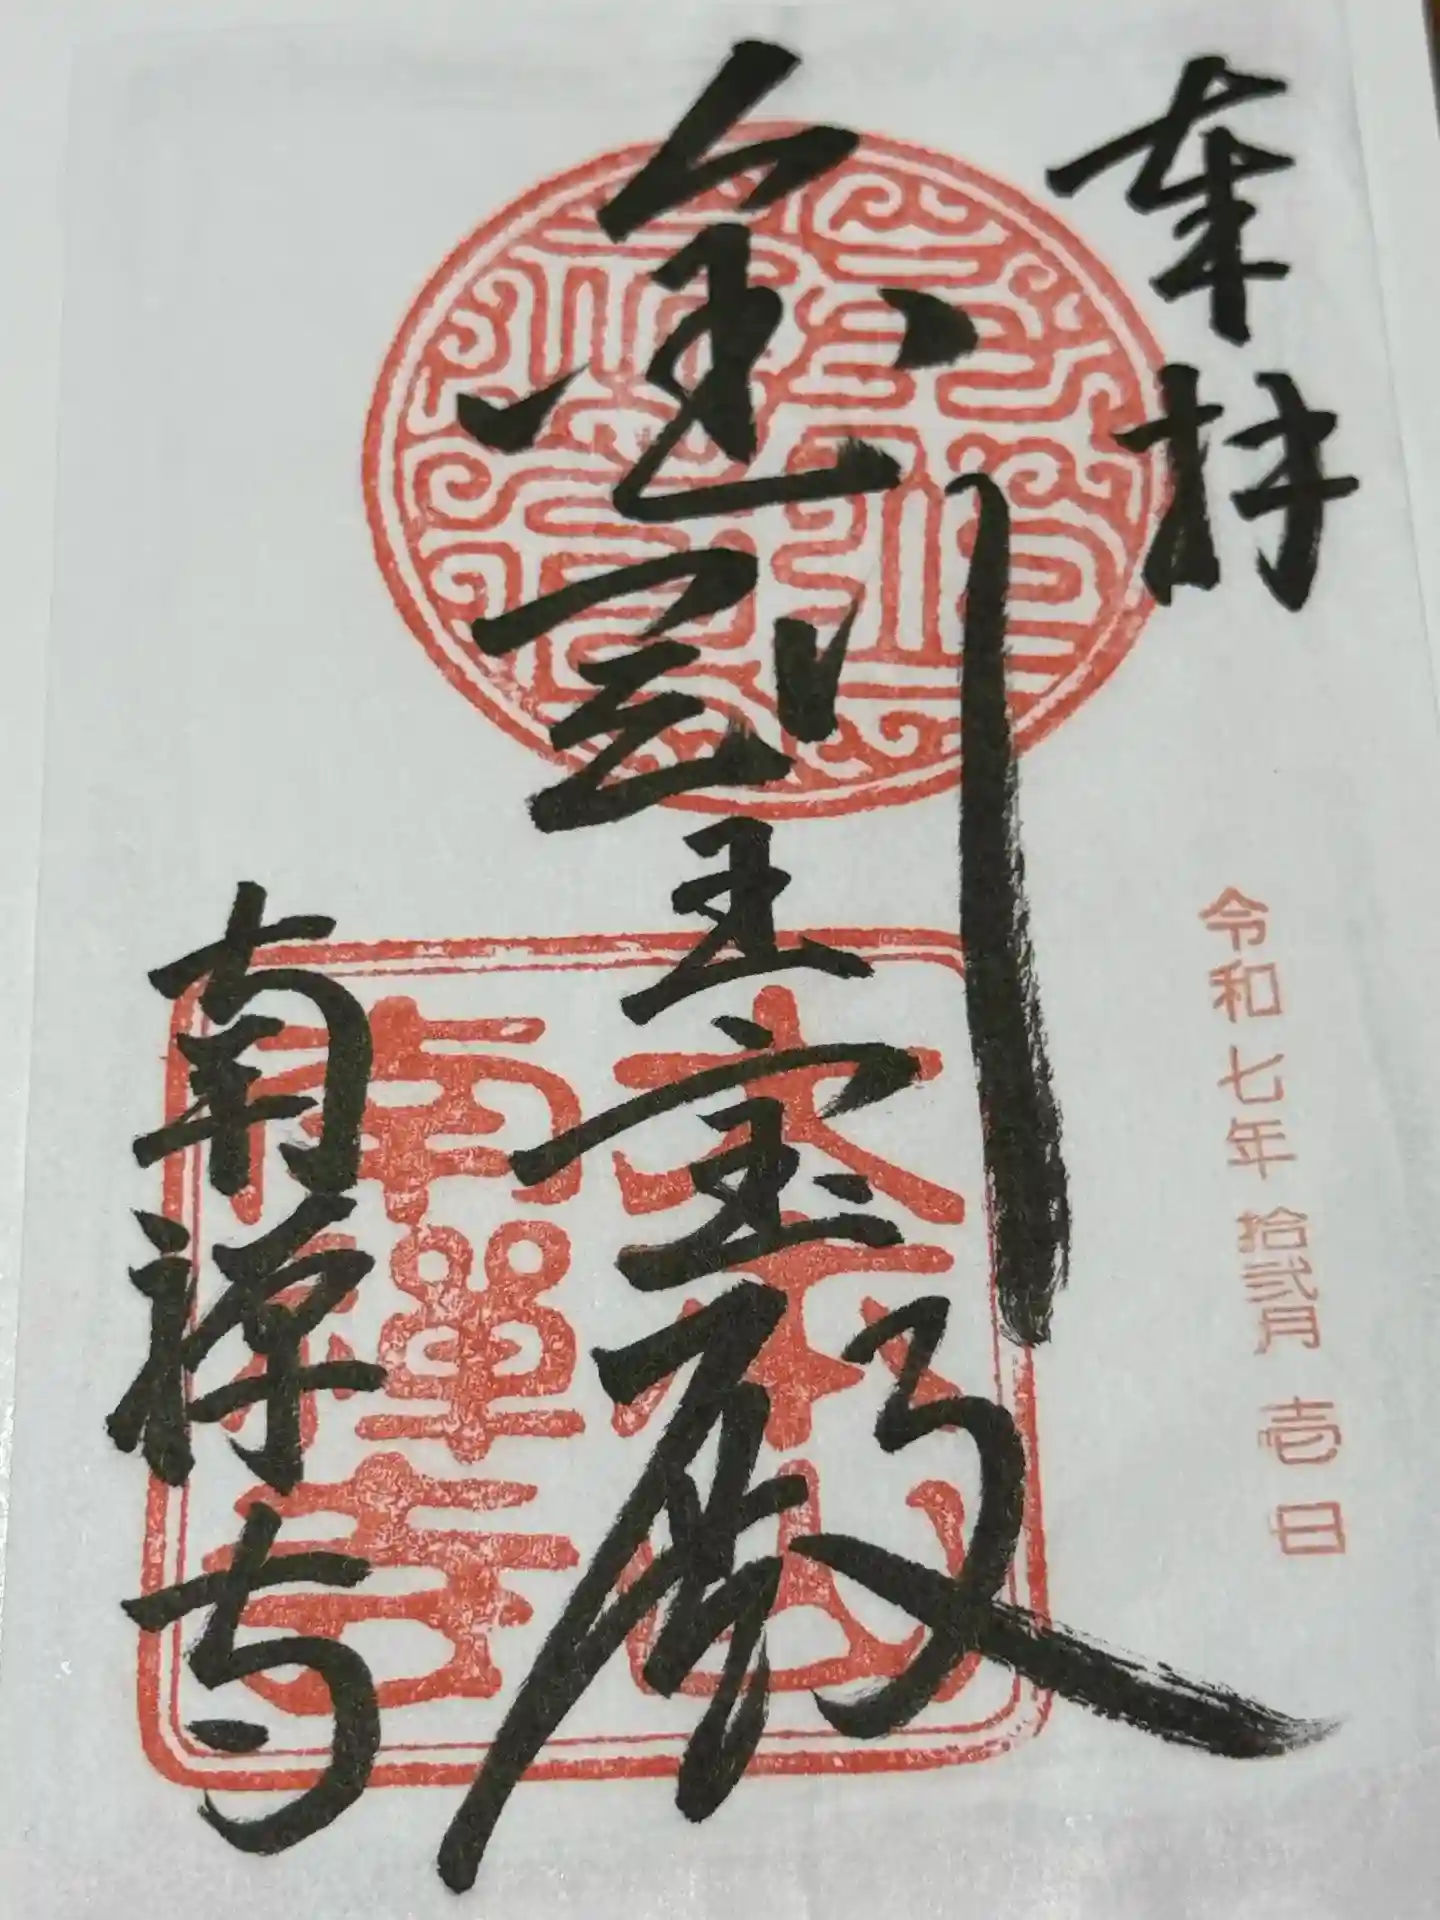 奉拝
令和七年 拾弐月 壱日
金剛王宝殿
大本山
南禪寺
南禅寺